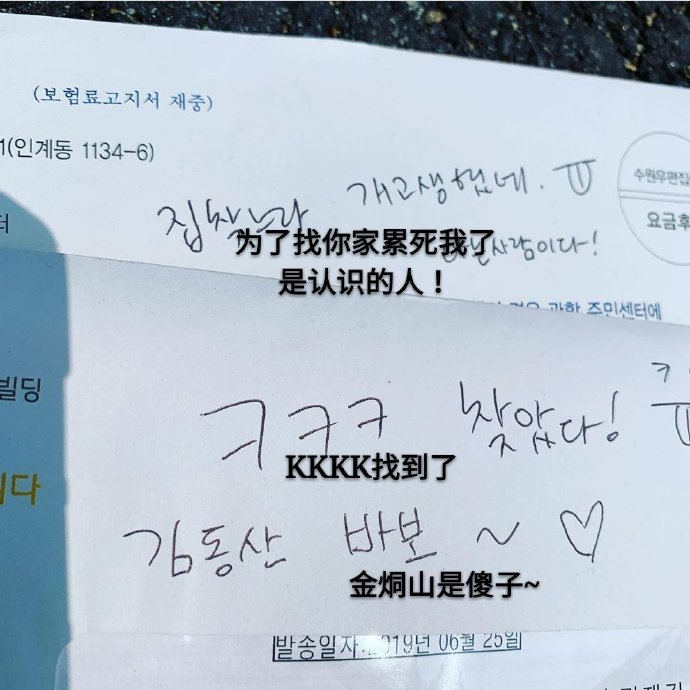 (보험료고지서 재중)
(인계동 1134-6)
집찾느라 개고생했네. ㅠ
수원우편집
요금후
为了找你家累死我了
사람이다!
是认识的人！
관할 주민센터에
빌딩
ㅋㅋㅋ 찾았다! ㅋ
KKKK找到了
니다
김동산 바보 ~ ♡
金烔山是傻子~
발송일자:2019년 06월 25일